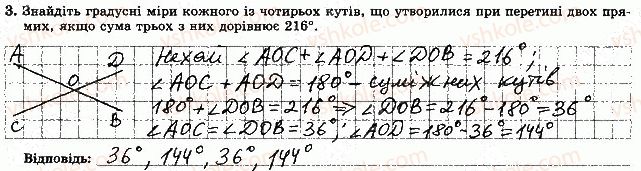 3. Знайдіть градусні міри кожного із чотирьох кутів, що утворилися при перетині двох пря-
мих, якщо сума трьох з них дорівнює 216°.
A D Нехай ∠AOC+∠AOD+∠DOB=216°;
O ∠AOC+AOD=180°- суміжних кутів
180°+∠DOB=216°⇒∠DOB=216°-180°=36°
C B ∠AOC=∠DOB=36°; ∠AOD=180°-36°=144°
Відповідь: 36°, 144°, 36°, 144°